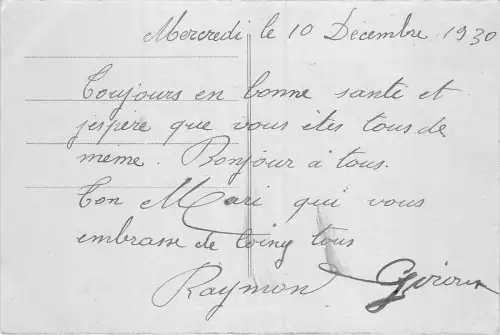 Mercredi le 10 Décembre 1930
Toujours en bonne santé et
jespère que vous êtes tous de
même. Bonjour à tous.
Ton Mari qui vous
embrasse de loing tous
Raymon